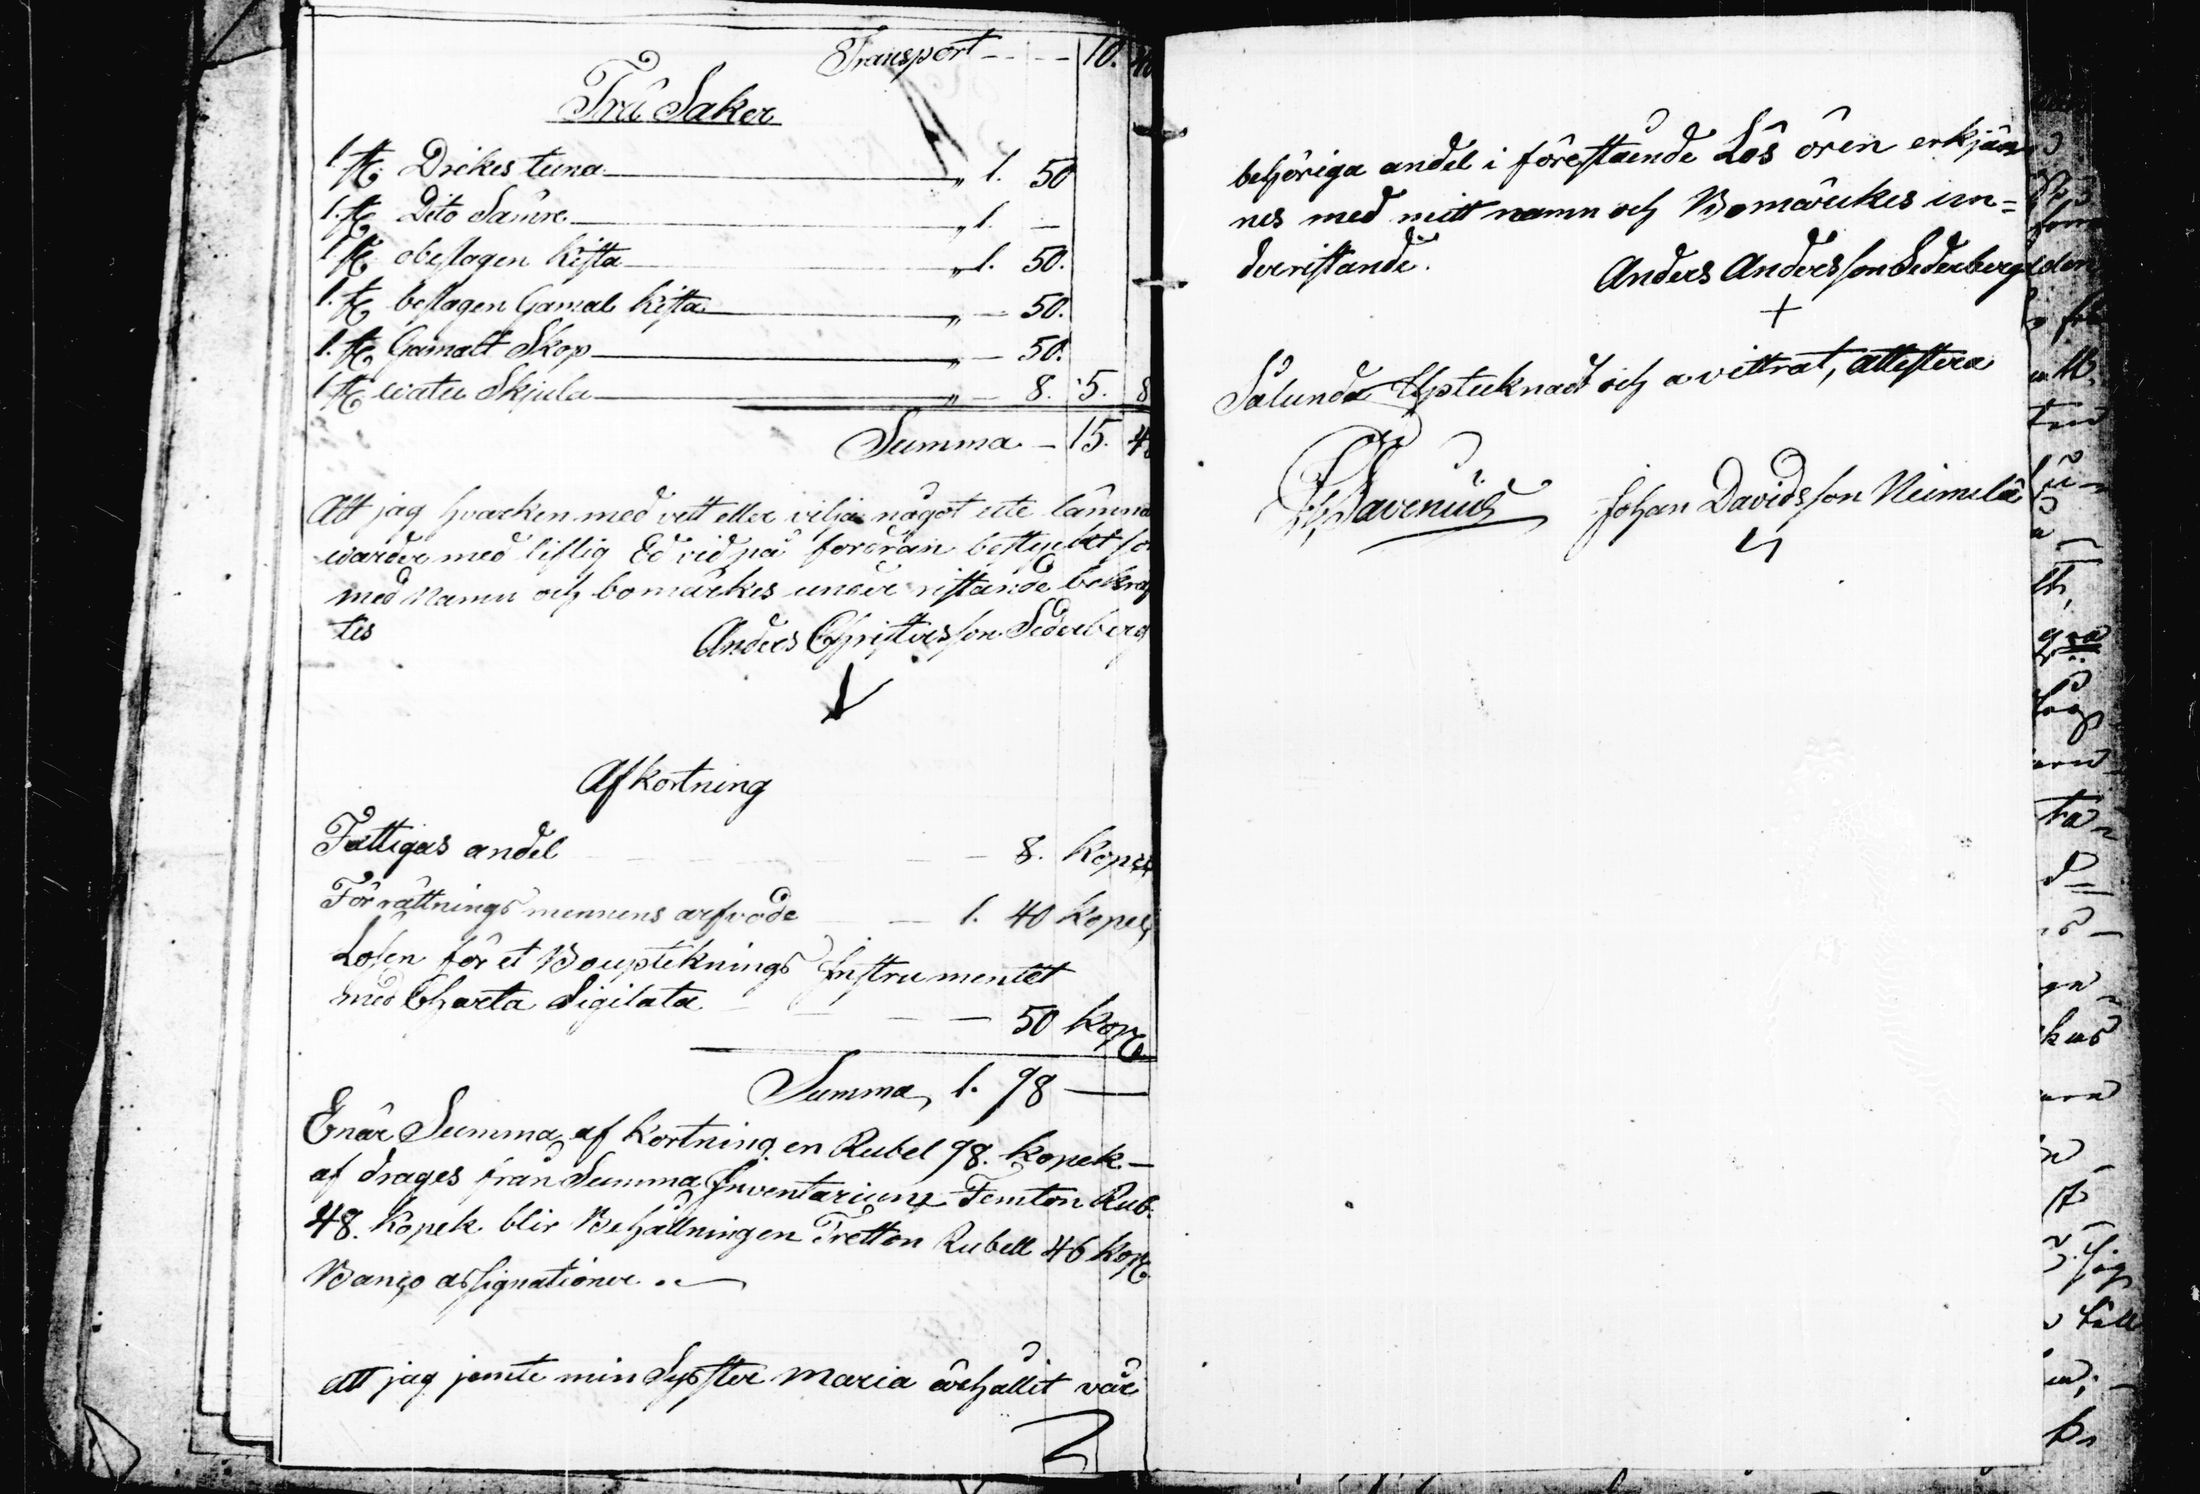 Transport - - - 10. 40
Trä Saker
1 st. Drikes tuna „ 1. 50
1. st. Dito Sämre „ 1. —
1 st. obeslagen kista „ 1. 50.
1. st. beslagen Gamal kista „ — 50.
1. st. Gamalt Skop „ — 50.
1 st. watu Skjula „ — 8. 5. 8
Summa — 15. 48
Att jag hvarken med vett eller vilja något ute lämna
warder med liflig Ed vid på fordran bestyrkt so
med Namn och bomärkes under ristande bekräf
tes Anders Christersson Sederberg
Afkortning
Fattigas andel — 8. kopek
Förrättnings mennens arfvode — 1. 40 kopek
Lösen för et Boupteknings Instrumentet
med Charta Sigilata — 50 kop
Summa, 1. 98 —
Enär Summa af kortning en Rubel 98. kopek —
af drages från Summa Inventarium Femton Rub.
48. kopek blir Behållningen Tretton Rubell 46 kop
Banco assignationer. —
att jag jemte min Syster Maria ärhållit vår
behöriga andel i förestående Lös ören erkjän
nes med mitt namn och Bomärkes un=
derristande.
Anders Andersson Sederberg
+
Sålunda Upteknadt och avittrat, attestera
Johan Davidsson Neimelä